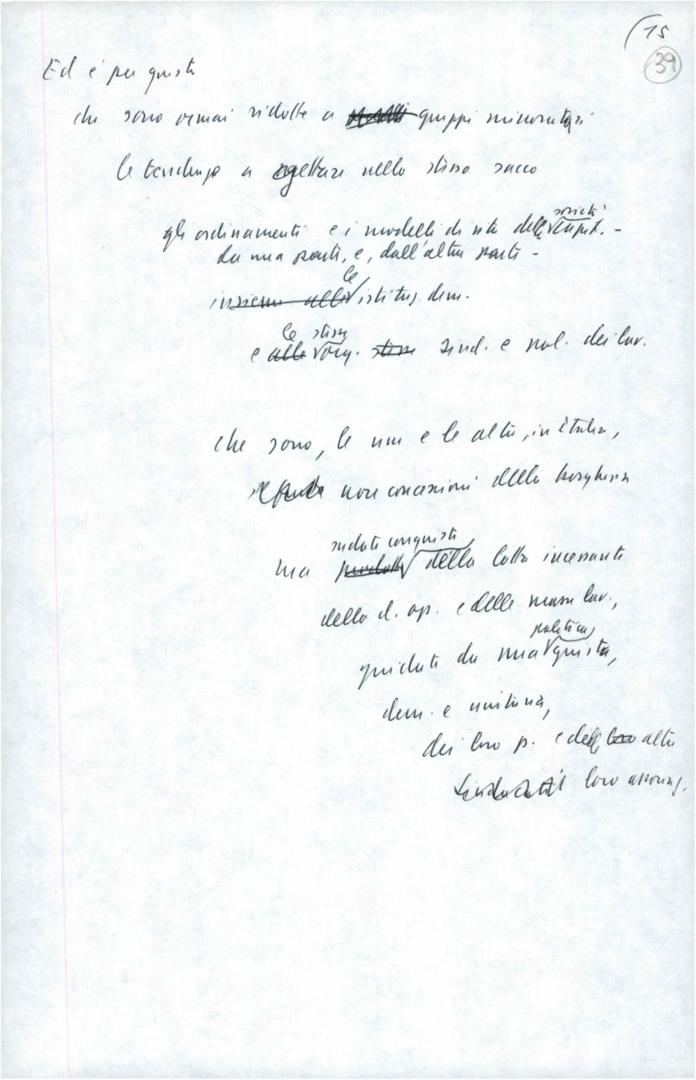 15
39
Ed è per questo
che sono ormai ridotte a gruppi minoritari
le tendenze a gettare nello stesso sacco
società
gli ordinamenti e i modelli di vita della capit. -
da una parte, e, dall'altra parte -
le
insieme alle istituz. dem.
le stesse
e alle org. stesse sind. e pol. dei lav.
che sono, le une e le altre, in Italia,
non concessioni della borghesia
sudate conquiste
ma prodotto della lotta incessante
della cl. op. e delle masse lav.,
politica,
guidate da una giusta,
dem. e unitaria,
dei loro p. e delle loro altre
loro associaz.